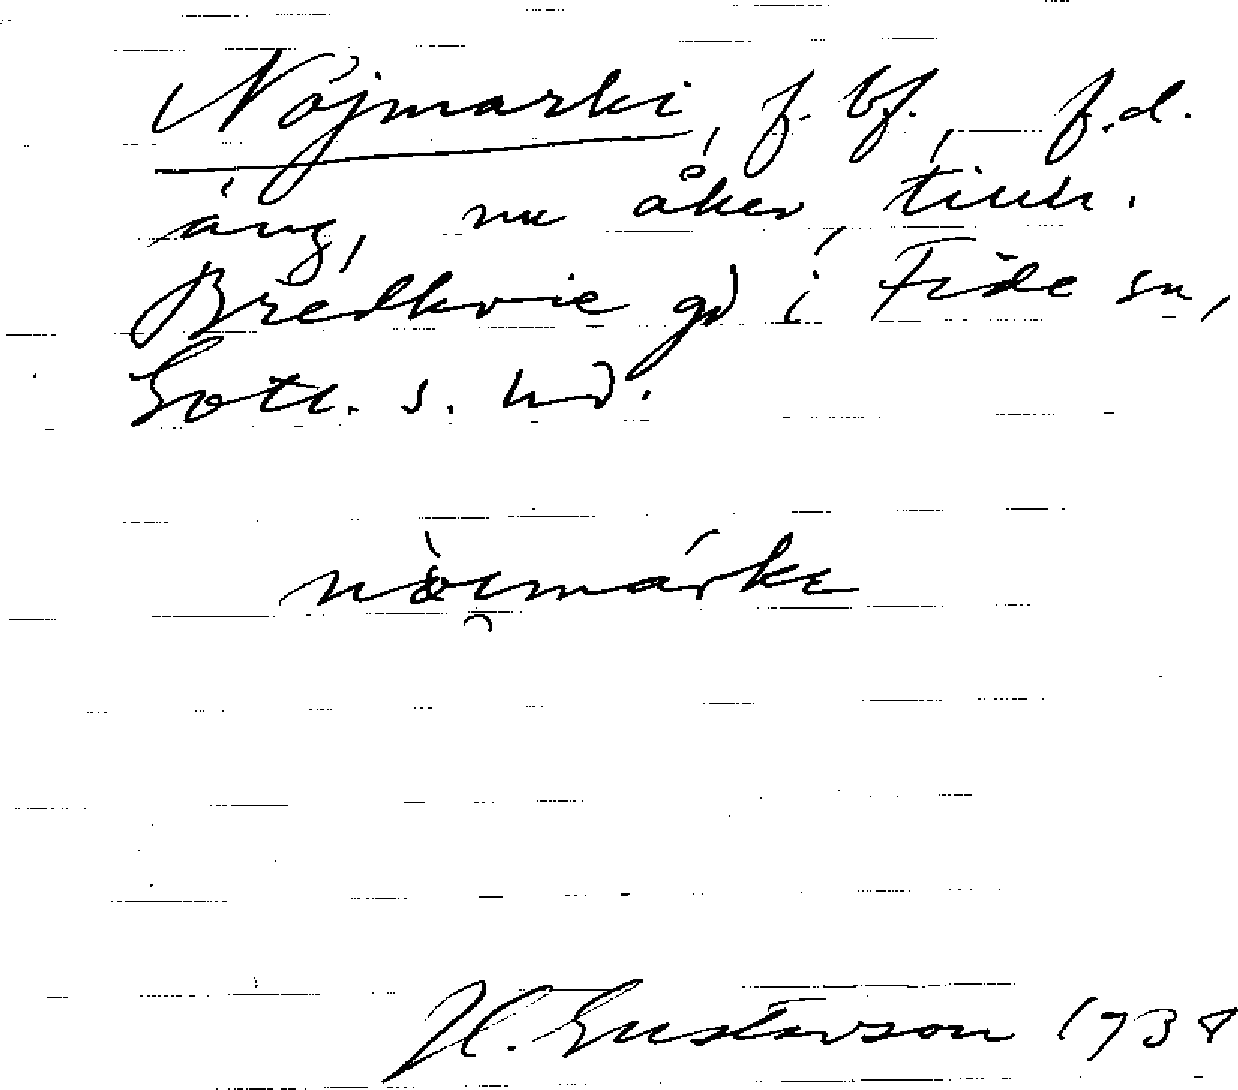 Nöjmarki, f. bf., f.d.
äng, nu åker, tillh.
Bredkvie gd i Fide sn,
Gotl. s. hd.
nòi̯márkɩ
H. Gustavson 1938